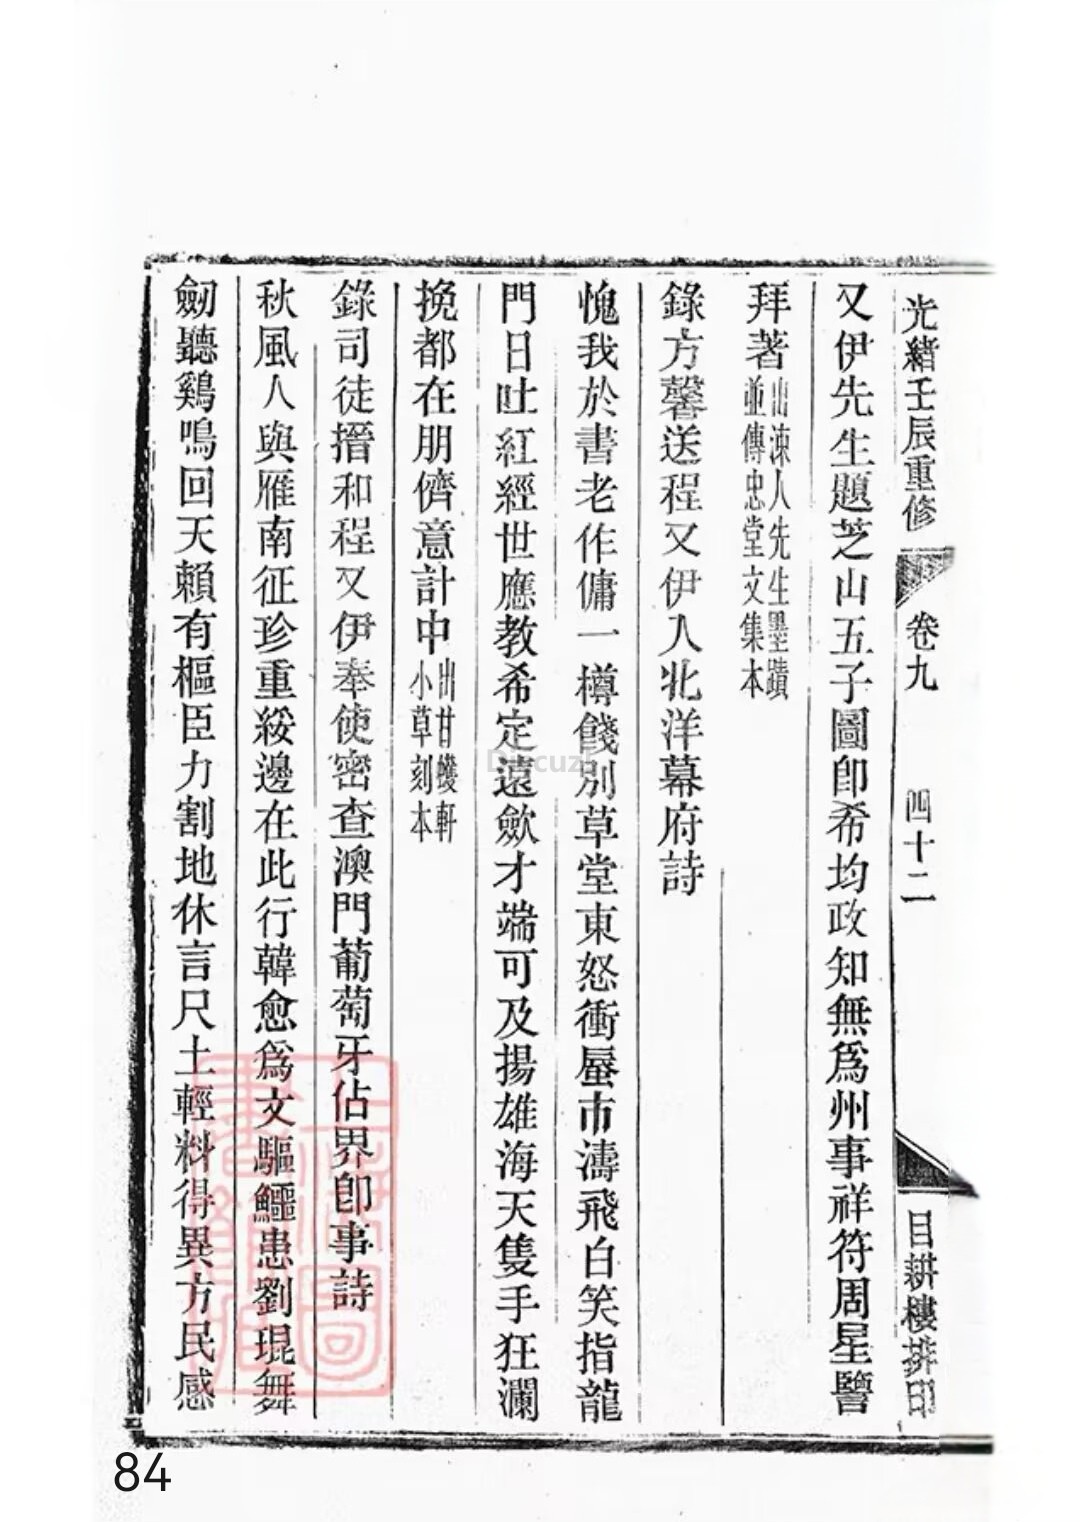 光緒壬辰重修 卷九 四十二 目耕樓排印
又伊先生題芝山五子圖卽希均政知無爲州事祥符周星譽
拜著出涑人先生墨蹟並傳忠堂文集本
錄方馨送程又伊入北洋幕府詩
愧我於書老作傭一樽餞別草堂東怒衝蜃市濤飛白笑指龍
門日吐紅經世應教希定遠歛才端可及揚雄海天隻手狂瀾
挽都在朋儕意計中出甘蠖軒小草刻本
錄司徒搢和程又伊奉使密查澳門葡萄牙佔界卽事詩
秋風人與雁南征珍重綏邊在此行韓愈爲文驅鱷患劉琨舞
劒聽鷄鳴回天賴有樞臣力割地休言尺土輕料得異方民感
Discuz!
84